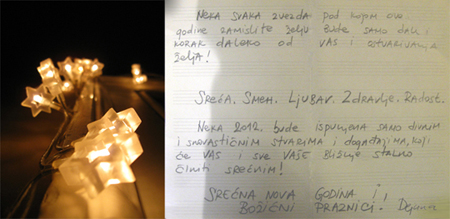 Neka svaka zvezda pod kojom ove
godine zamislite želju bude samo dah i
korak daleko od VAS i ostvarivanja
želja!
Sreća. Smeh. Ljubav. Zdravlje. Radost.
Neka 2012. bude ispunjena samo divnim
i stvarima i događajima, koji
će VAS i sve VAŠE bližnje stalno
činiti srećnim!
SREĆNA NOVA GODINA i
BOŽIĆNI PRAZNICI! Dejana